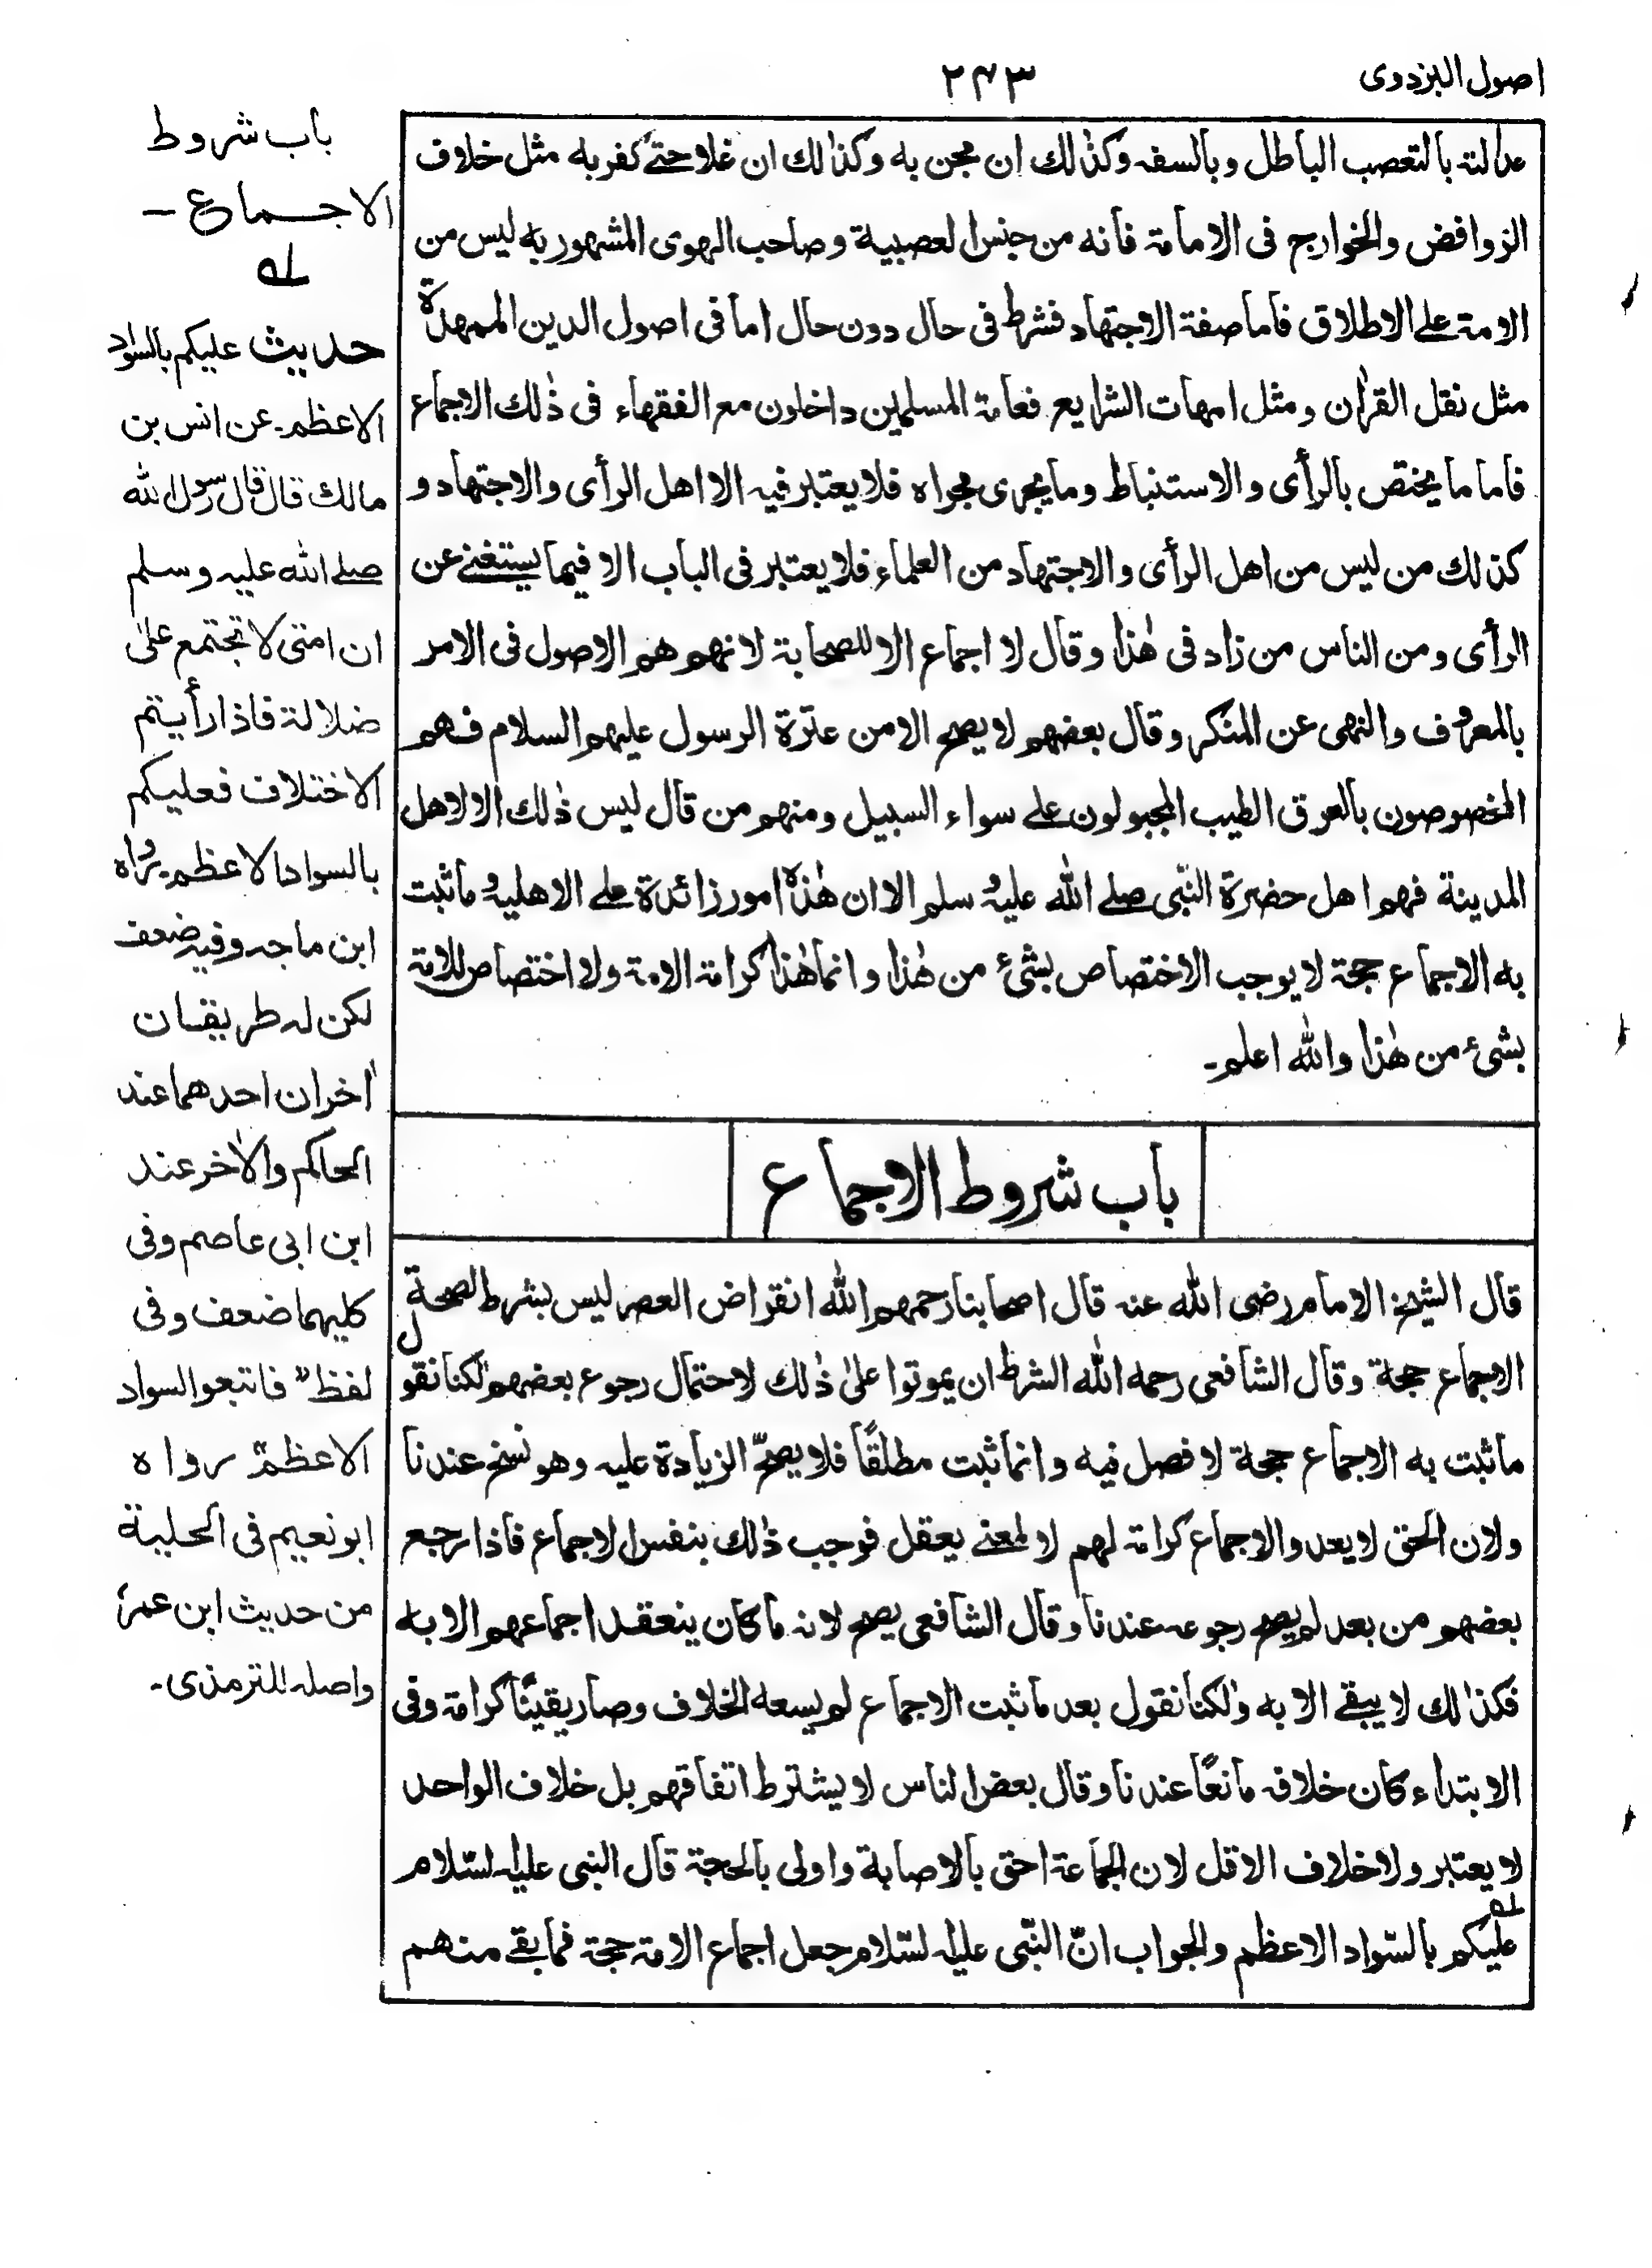 اصول البزدوی
۲۴۳
عدالته بالتعصب الباطل وبالسفه وكذٰلك ان مجن به وكذٰلك ان غلا حتے كفر به مثل خلاف
الروافض والخوارج فی الامامة فانه من جنس العصبية وصاحب الهوى المشهور به ليس من
الامة علے الاطلاق فاما صفة الاجتهاد فشرط فی حال دون حال اما فی اصول الدين الممهدة
مثل نقل القرٰان ومثل امهات الشرايع فعامة المسلمين داخلون مع الفقهاء فی ذٰلك الاجماع
فاما ما يختص بالرأى والاستنباط وما يجرى مجراه فلا يعتبر فيه الا اهل الرأى والاجتهاد و
كذلك من ليس من اهل الرأى والاجتهاد من العلماء فلا يعتبر فى الباب الا فيما يستغنے عن
الرأى ومن الناس من زاد فى هٰذا وقال لا اجماع الا للصحابة لانهم هم الاصول فى الامر
بالمعروف والنهى عن المنكر وقال بعضهم لا يصح الا من عترة الرسول عليهم السلام فهم
المخصوصون بالعرق الطيب المجبولون علے سواء السبيل ومنهم من قال ليس ذٰلك الا لاهل
المدينة فهم اهل حضرة النّبى صلے الله عليه وسلم الا ان هٰذه امور زائدة علے الاهلية وما ثبت
به الاجماع حجة لا يوجب الاختصاص بشئ من هٰذا وانما هٰذا كرامة الامة ولا اختصاص للامة
بشئ من هٰذا والله اعلم۔
باب شروط الاجماع
قال الشيخ الامام رضى الله عنه قال اصحابنا رحمهم الله انقراض العصر ليس بشرط لصحة
الاجماع حجة وقال الشافعى رحمه الله الشرط ان يموتوا علىٰ ذٰلك لاحتمال رجوع بعضهم لٰكنا نقول
ما ثبت به الاجماع حجة لا فصل فيه وانما ثبت مطلقًا فلا يصحّ الزيادة عليه وهو نسخ عندنا
ولان الحق لا يعدو الاجماع كرامة لهم لا لمعنے يعقل فوجب ذٰلك بنفس الاجماع فاذا رجع
بعضهم من بعد لم يصح رجوعه عندنا وقال الشافعى يصح لانه ما كان ينعقد اجماعهم الا به
فكذٰلك لا يبقے الا به ولٰكنا نقول بعد ما ثبت الاجماع لم يسعه الخلاف وصار يقينًا كرامة وفى
الابتداء كان خلافه مانعًا عندنا وقال بعض الناس لا يشترط اتفاقهم بل خلاف الواحد
لا يعتبر ولا خلاف الاقل لان الجماعة احق بالاصابة واولى بالحجة قال النبى عليه السّلام
له عليكم بالسّواد الاعظم والجواب انّ النّبى عليه السّلام جعل اجماع الامة حجة فما بقے منهم
باب شروط
الاجماع —
له
حديث عليكم بالسواد
الاعظم۔ عن انس بن
مالك قال قال رسول الله
صلے الله عليه وسلم
ان امتى لا تجتمع علىٰ
ضلالة فاذا رأيتم
الاختلاف فعليكم
بالسواد الاعظم۔ رواه
ابن ماجه وفيه ضعف
لكن له طريقان
اٰخران احدهما عند
الحاكم والاٰخر عند
ابن ابى عاصم وفى
كليهما ضعف وفى
لفظ "فاتبعوا السواد
الاعظم" رواه
ابو نعيم فى الحلية
من حديث ابن عمرؓ
واصله للترمذى۔